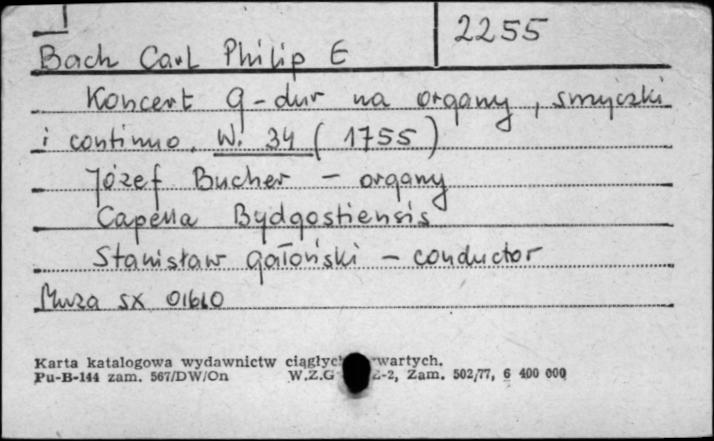 2255
Bach Carl Philip E
Koncert G-dur na organy, smyczki
i continuo. W. 34 (1755)
Józef Bucher - organy
Capella Bydgostiensis
Stanisław Gałoński - conductor
Muza SX 01610
Karta katalogowa wydawnictw
Pu-B-144 zam. 567/DW/On W.Z.G Zam. 502/77, 6 400 000